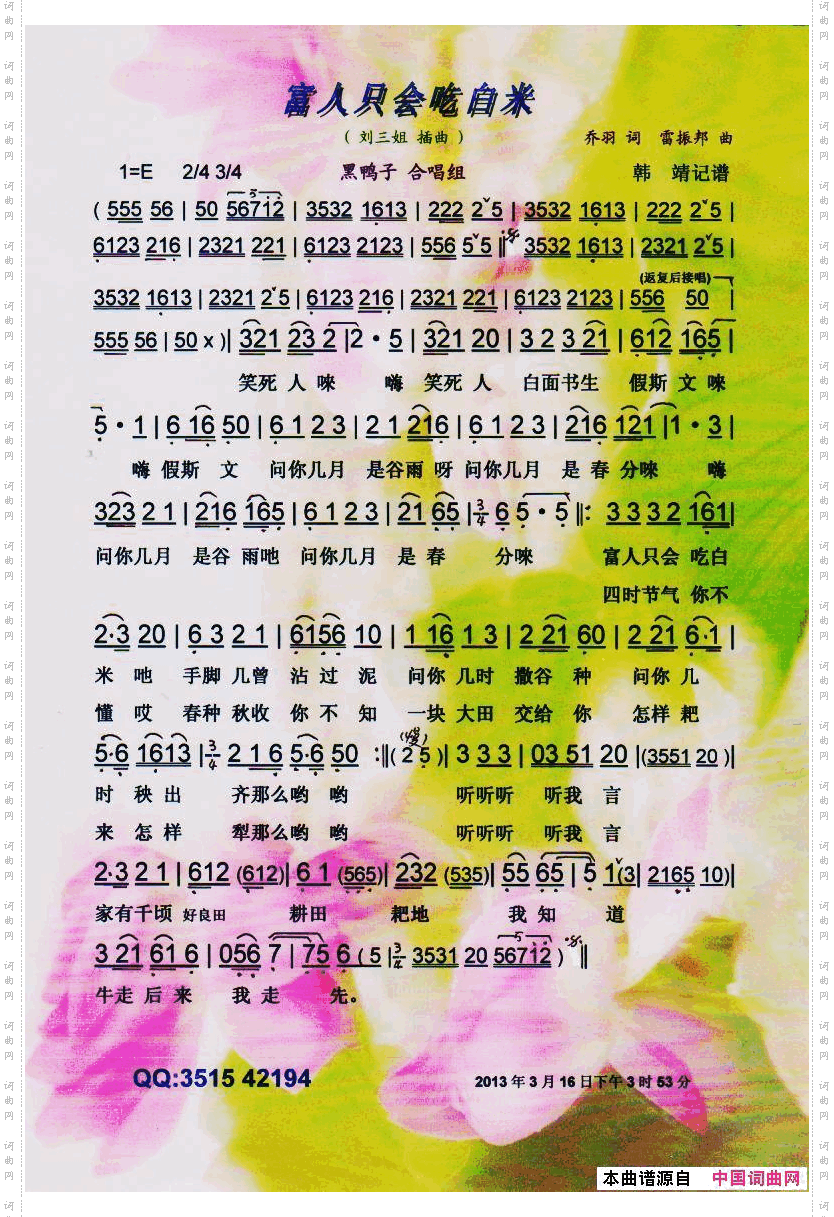 富人只会吃白米
（ 刘三姐 插曲 ）
乔羽 词 雷振邦 曲
1=E 2/4 3/4 黑鸭子 合唱组 韩 靖记谱
( 555 56 | 50 56712 | 3532 1613 | 222 2ˇ5 | 3532 1613 | 222 2ˇ5 |
6123 216 | 2321 221 | 6123 2123 | 556 5ˇ5 ‖ 3532 1613 | 2321 2ˇ5 |
(返复后接唱)
3532 1613 | 2321 2ˇ5 | 6123 216 | 2321 221 | 6123 2123 | 556 50 |
555 56 | 50 x )| 321 23 2 | 2 · 5 | 321 20 | 3 2 3 21 | 612 165 |
笑死 人 唻 嗨 笑死 人 白面书生 假斯 文 唻
5 · 1 | 6 16 50 | 6 1 2 3 | 2 1 216 | 6 1 2 3 | 216 121 | 1 · 3 |
嗨 假斯 文 问你几月 是谷雨 呀 问你几月 是 春 分唻 嗨
323 2 1 | 216 165 | 6 1 2 3 | 21 65 | 3/4 6 5 · 5 ‖: 3 3 3 2 161 |
问你几月 是谷 雨吔 问你几月 是 春 分唻 富人只会 吃白
四时节气 你不
2·3 20 | 6 3 2 1 | 6156 10 | 1 16 1 3 | 2 21 60 | 2 21 6·1 |
米 吔 手脚 几曾 沾 过 泥 问你 几时 撒谷 种 问你 几
懂 哎 春种 秋收 你 不 知 一块 大田 交给 你 怎样 耙
(慢)
5·6 1613 | 3/4 2 1 6 5·6 50 :‖ ( 2 5 )| 3 3 3 | 03 51 20 |(3551 20 )|
时 秧出 齐那么哟 哟 听听听 听我 言
来 怎样 犁那么哟 哟 听听听 听我 言
2·3 2 1 | 612 (612)| 6 1 (565)| 232 (535)| 55 65 | 5 1ˇ(3| 2165 10)|
家有千顷 好良田 耕田 耙地 我 知 道
3 21 61 6 | 056 7 | 75 6 ( 5 | 3/4 3531 20 56712 ) ‖
牛走 后 来 我 走 先。
QQ:3515 42194
2013 年 3 月 16 日下午 3 时 53 分
本曲谱源自 中国词曲网